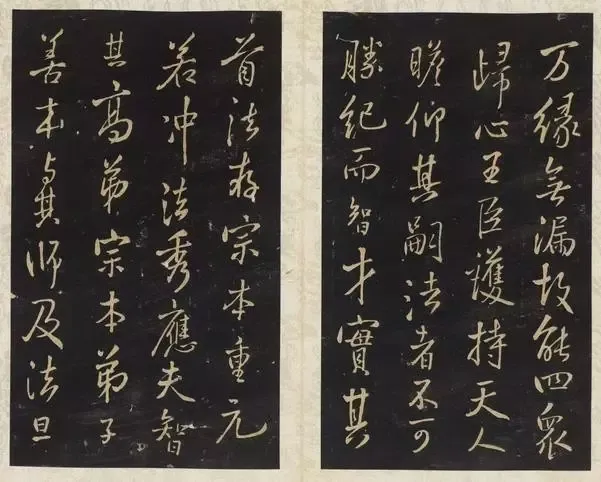 万緣無漏故能四衆
歸心王臣護持天人
瞻仰其嗣法者不可
勝紀而智才實其
首法存宗本重元
若冲法秀應夫智
其高弟宗本弟子
善本与其師及法旦